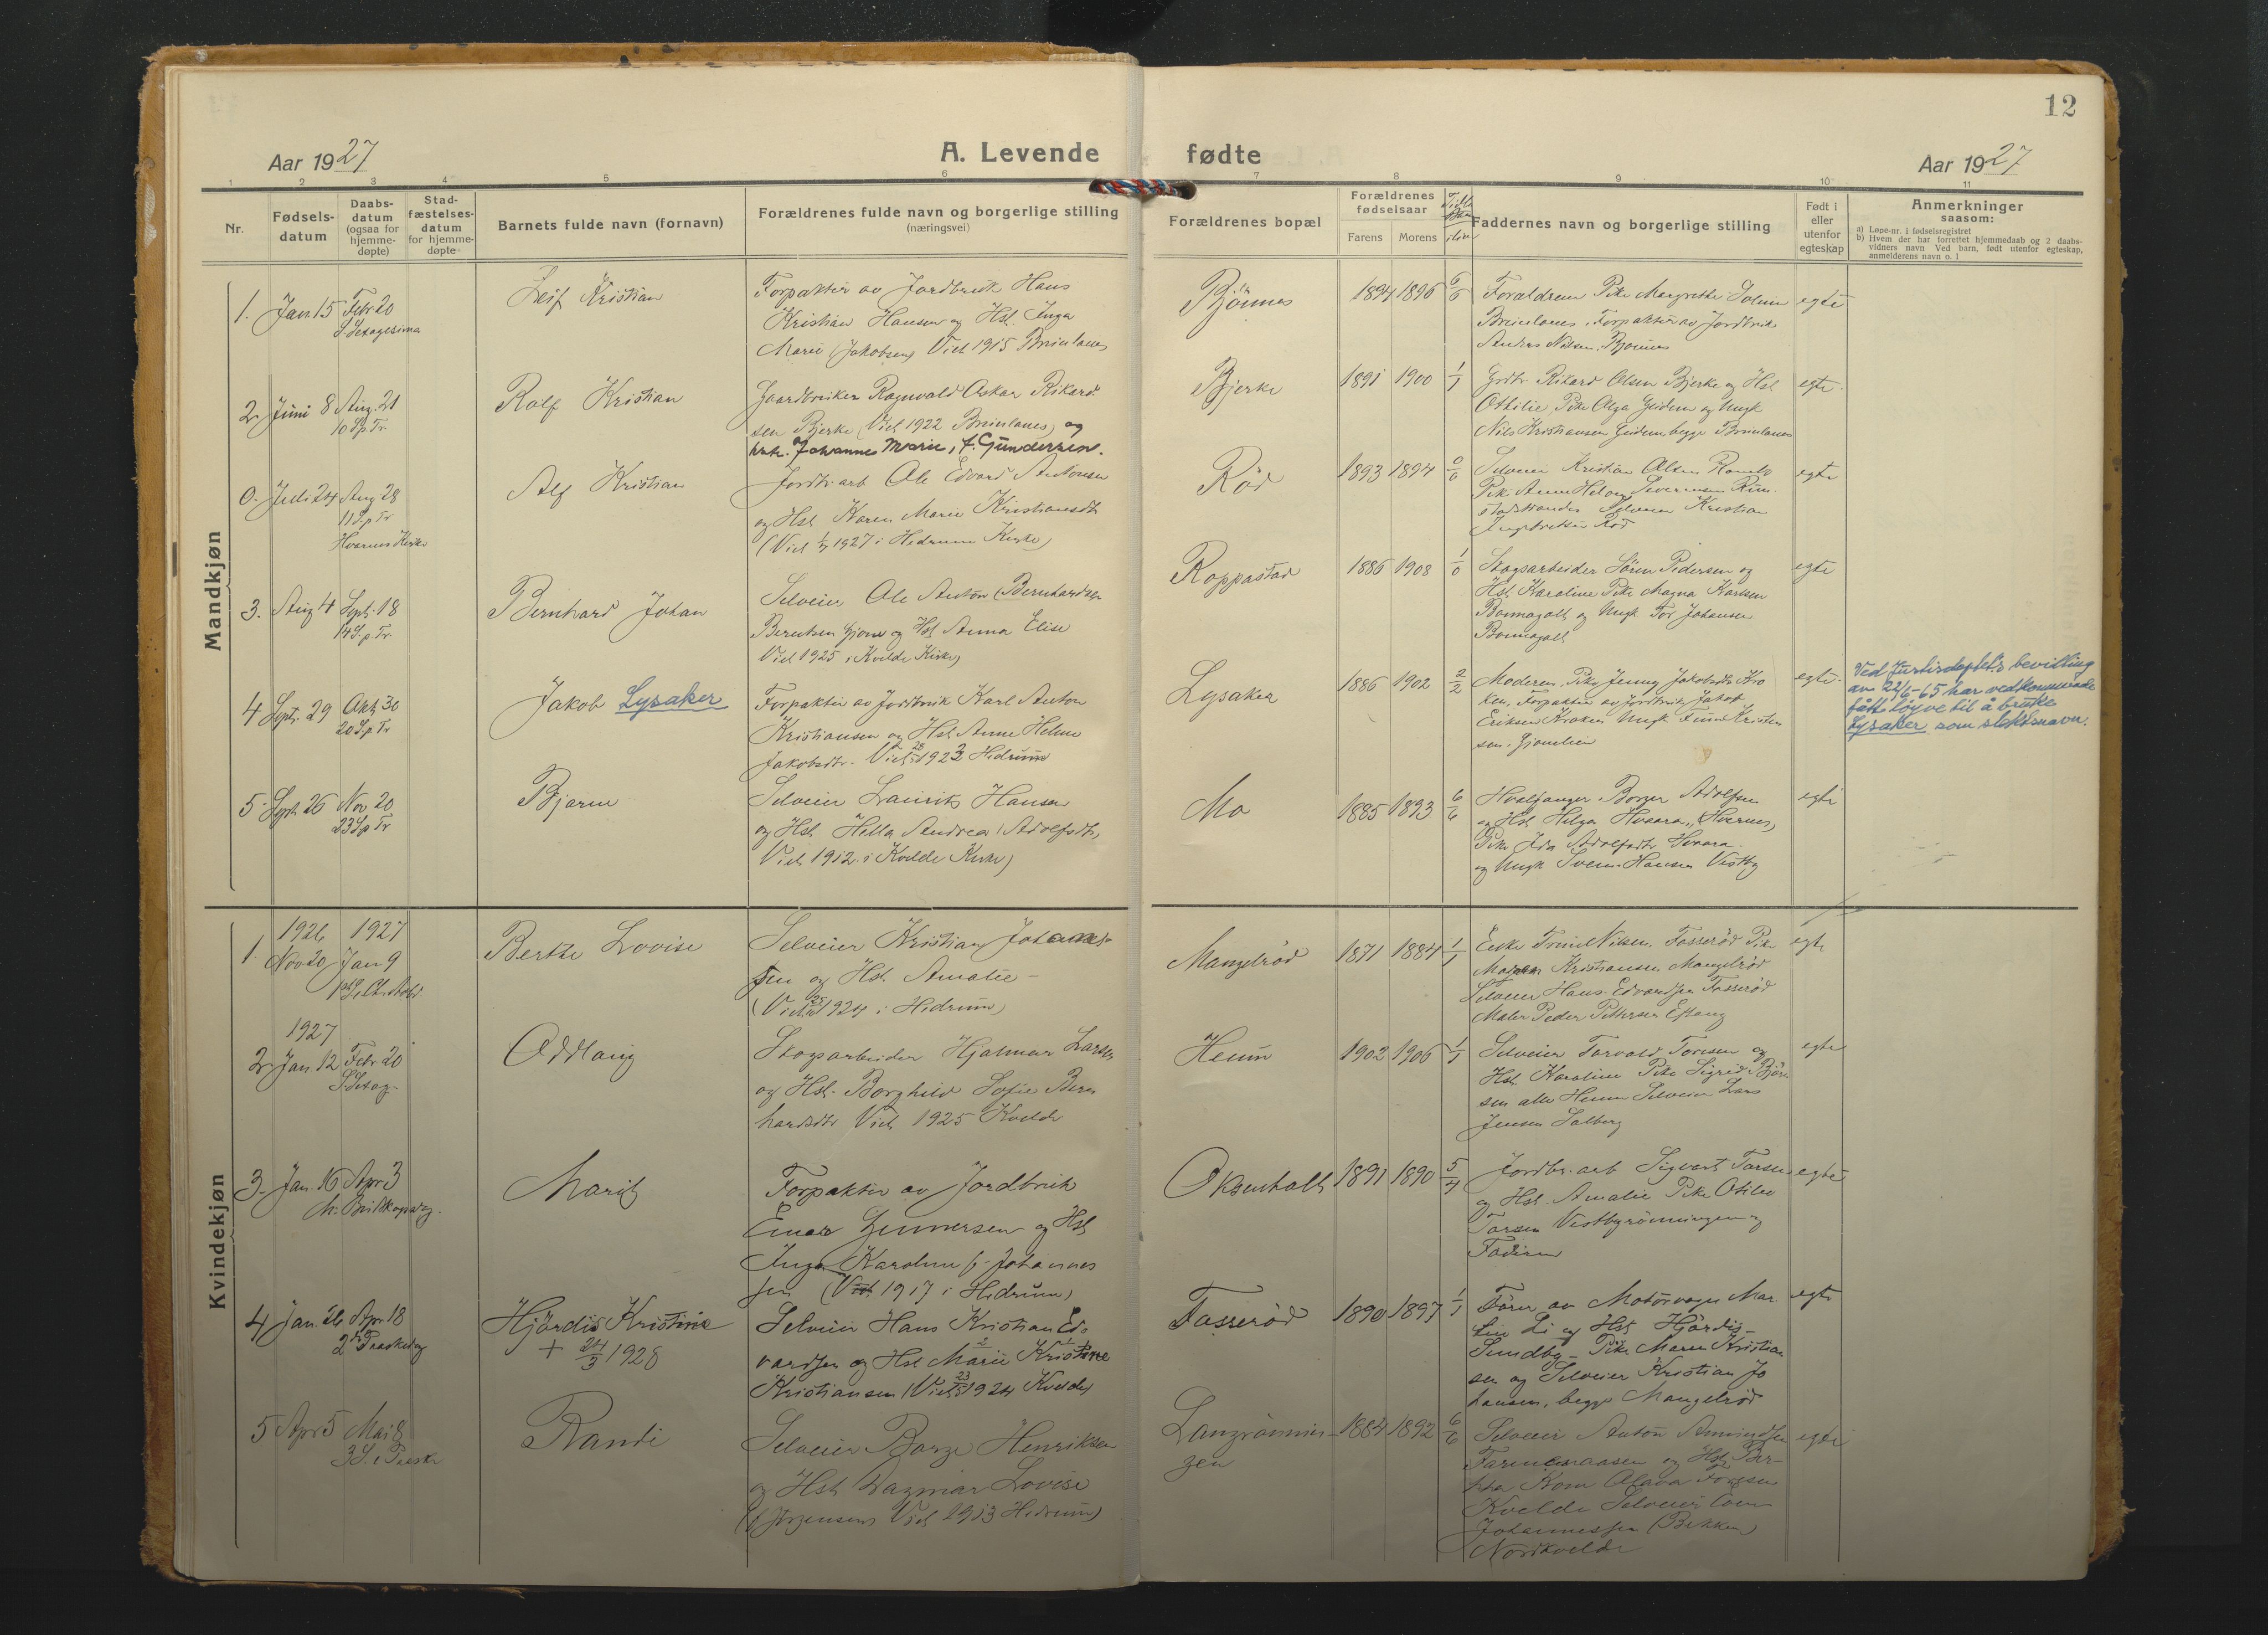 12
Aar 1927
A. Levende fødte
Aar 1927
1 2 3 4 5 6 7 8 9 10 11
Nr.
Fødsels-
datum
Daabs-
datum
(ogsaa for
hjemme-
døpte)
Stad-
fæstelses-
datum
for hjemme-
døpte
Barnets fulde navn (fornavn)
Forældrenes fulde navn og borgerlige stilling
(næringsvei)
Forældrenes bopæl
Forældrenes
fødselsaar
Farens Morens
Faddernes navn og borgerlige stilling
Født i
eller
utenfor
egteskap
Anmerkninger
saasom:
a) Løpe-nr. i fødselsregistret
b) Hvem der har forrettet hjemmedaab og 2 daabs-
vidners navn Ved barn, født utenfor egteskap,
anmelderens navn o. l
Mandkjøn
1. Jan 15 Febr 20
S. Sexagesima
Leif Kristian
Forpakter av Jordbruk Hans
Kristian Hansen og Hst. Inga
Marie (Jakobsen) Viet 1915 Brunlanes
Bjönnes
1894 1896 6/6
Forældrene Pike Margrethe
Brunlanes, Forpakter av Jordbruk
Anders Nilsen, Bjönnes
egte
2. Juni 8 Aug. 21
10 S p Tr.
Rolf Kristian
Gaardbruker Ragnvald Oskar Rikard
sen Bjerke (Viet 1922 Brunlanes) og
hstr. Johanne Marie, f. Gundersen.
Bjerke
1891 1900 1/1
Grdbr. Rikard Olsen Bjerke og Hst
Othilie, Pike Olga og Ungk
Nils Kristiansen begge Brunlanes
egte.
0. Juli 24 Aug 28
11 S. p Tr
Hvarnes Kirke
Alf Kristian
Jordbr. arb Ole Edvard Antonsen
og Hst Karen Marie Kristiansdtr
(Viet 1927 i Hedrum Kirke)
Röd
1893 1894 0/0
Selveier Kristian Olsen
Pike Anne Helene Severinsen
Selveier Kristian
Ingebretsen Röd
egte
3. Aug 4 Sept. 18
14 S. p. Tr.
Bernhard Johan
Selveier Ole Anton (Bernhardsen
Berntsen Gjone og Hst Anna Elise
Viet 1925 i Kvelde Kirke)
Roppestad
1886 1908 1/0
Skogsarbeider Sören Pedersen og
Hst Karoline Pike Magna Karlsen
Bommagolt og Ungk Tor Johansen
Bommagolt
egte
4 Sept. 29 Okt 30
20 S. p Tr
Jakob Lysaker
Forpakter av Jordbruk Karl Anton
Kristiansen og Hst Anne Helene
Jakobsdtr. Viet 1923 Hedrum
Lysaker
1886 1902 2/2
Moderen, Pike Jenny Jakobsdtr Kro
ken, Forpakter av Jordbruk Jakob
Eriksen Kroken Ungk Finn Kristen
sen, Gjonelien
egte.
Ved Justisdeptets bevilling
av 22/6-65 har vedkommende
fått løyve til å bruke
Lysaker som slektsnavn.
5. Sept. 26 Nov 20
23 S p Tr
Bjarne
Selveier Laurits Hansen
og Hst Hella Andrea (Adolfsdtr,
Viet 1912 i Kvelde Kirke)
Mo
1885 1893 6/6
Hvalfanger Borger Adolfsen
og Hst Helga Hvaara, (Hvarnes),
Pike Ida Adolfsdtr Hvaara.
og Ungk Svein Hansen Vestby
egte
Kvindekjøn
1926 1927
1. Nov 20 Jan 9
Berthe Lovise
Selveier Kristian Johannes-
sen og Hst Amalie -
(Viet 1924 i Hedrum)
Mangelröd
1871 1884 1/1
Enke Trine Nilsen, Fasseröd Pike
Kristiansen Mangelröd
Selveier Hans Edvardsen Fasseröd
Maler Peder Pettersen Eftang
egte
1927
2. Jan 12 Febr 20
S Sexag.
Oddlaug
Skogsarbeider Hjalmar Larsen
og Hst. Borghild Sofie Bern
hardsdtr Viet 1925 Kvelde
Heum
1902 1906 1/1
Selveier Torvald Toresen og
Hst Karoline Pike Sigrid Björn
sen alle Heum Selveier Lars
Jensen Solberg
egte
3. Jan. 16 Apr 3
M. Budskapsdag.
Marit
Forpakter av Jordbruk
Einar Gunnersen og Hst
Inga Karoline f. Johannes
sen (Viet 1917 i Hedrum)
Oksenholt
1891 1890 5/4
Jordbr. arb Sigvart Torsen
og Hst. Amalie Pike Otilie
Torsen Vestbyrönningen og
Faderen
egte
4 Jan. 26 Apr 18
2 Paaskedag
Hjördis Kristine
+ 24/3 1928
Selveier Hans Kristian Ed-
vardsen og Hst Marie Kristine
Kristiansen (Viet 23 1924 Kvelde)
Fasseröd
1890 1897 1/1
Förer av Motorvogn Mar
Li og Hst Hjördis
Sundby - Pike Maren Kristian
sen og Selveier Kristian Jo
hansen, begge Mangelröd
egte
5 Apr 5 Mai 8
3 S. e Paaske
Randi
Selveier Borge Henriksen
og Hst Dagmar Lovise
(f Jörgensen) Viet 1913 Hedrum)
Langrönnin-
gen
1884 1892 6/6
Selveier Anton Amundsen
og Hst Ber-
tha Kone Olava Torgesen
Kvelde Selveier Even
Johannessen (Bekken)
Nordkvelde
egte